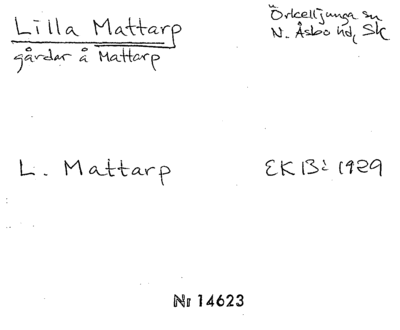 Lilla Mattarp
gårdar å Mattarp
Örkelljunga sn
N. Åsbo hd, Sk
L. Mattarp
EKB: 1929
Nr 14623